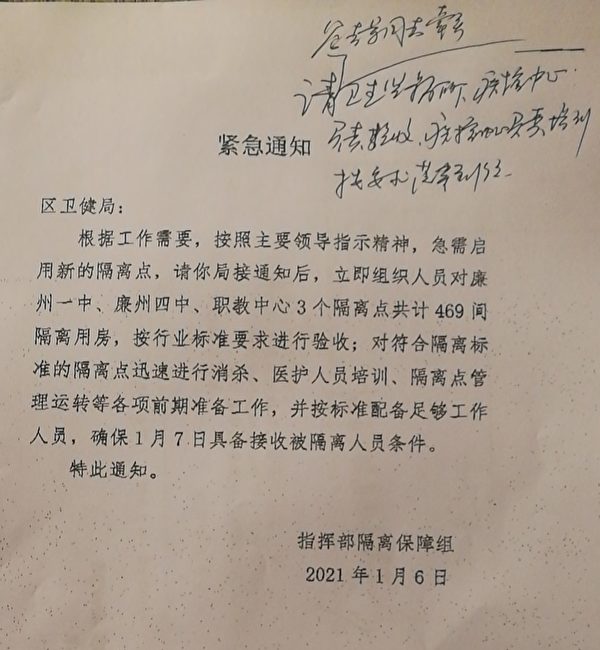 同志牵头
请卫生监督所、疾控中心
负责验收、疾控中心负责培训
紧急通知
区卫健局：
根据工作需要，按照主要领导指示精神，急需启
用新的隔离点，请你局接通知后，立即组织人员对廉
州一中、廉州四中、职教中心3个隔离点共计469间
隔离用房，按行业标准要求进行验收；对符合隔离标
准的隔离点迅速进行消杀、医护人员培训、隔离点管
理运转等各项前期准备工作，并按标准配备足够工作
人员，确保1月7日具备接收被隔离人员条件。
特此通知。
指挥部隔离保障组
2021年1月6日